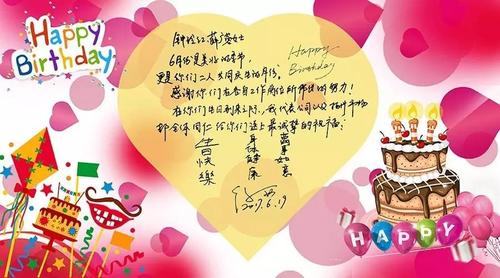 Happy
Birthday
女士
6月份是美好的季节,
Happy
Birthday
更是你们二人共同庆生的月份。
感谢你们在各自工作岗位所作出的努力!
在你们生日到来之际,我代表公司以及市场
部全体同仁给你们送上最诚挚的祝福:
生日快樂
身体健康
萬事如意
2017.6.19
HAPPY